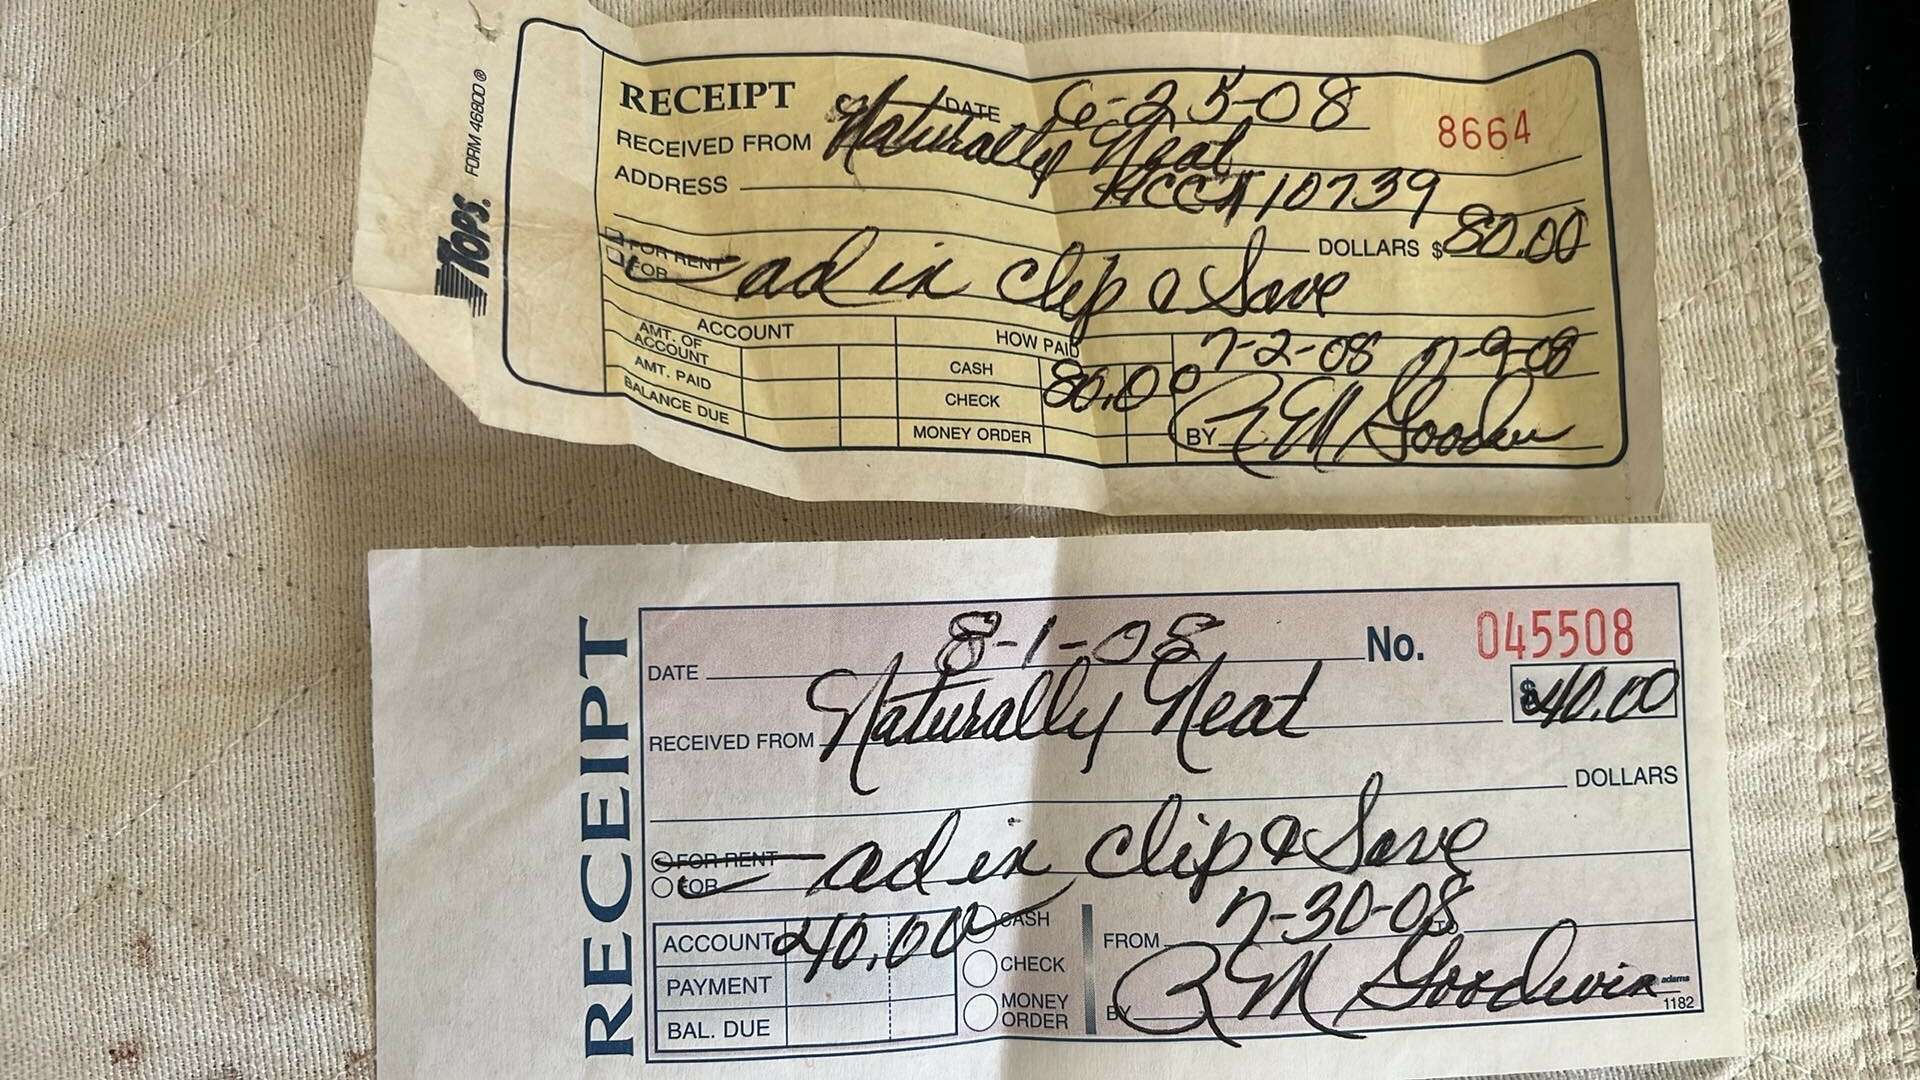 FORM 46800 ®
TOPS®
RECEIPT DATE 6-25-08 8664
RECEIVED FROM Naturally Neat
ADDRESS Acct 10739
DOLLARS $ 80.00
FOR RENT
FOR ad in clip & Save
ACCOUNT HOW PAID 7-2-08 7-9-08
AMT. OF ACCOUNT CASH 80.00
AMT. PAID CHECK
BALANCE DUE MONEY ORDER BY RM Goodwin
RECEIPT
DATE 8-1-08 No. 045508
RECEIVED FROM Naturally Neat $40.00
DOLLARS
FOR RENT
FOR ad in clip & Save
ACCOUNT 40.00 CASH 7-30-08
PAYMENT CHECK FROM
BAL. DUE MONEY ORDER BY RM Goodwin
adams
1182